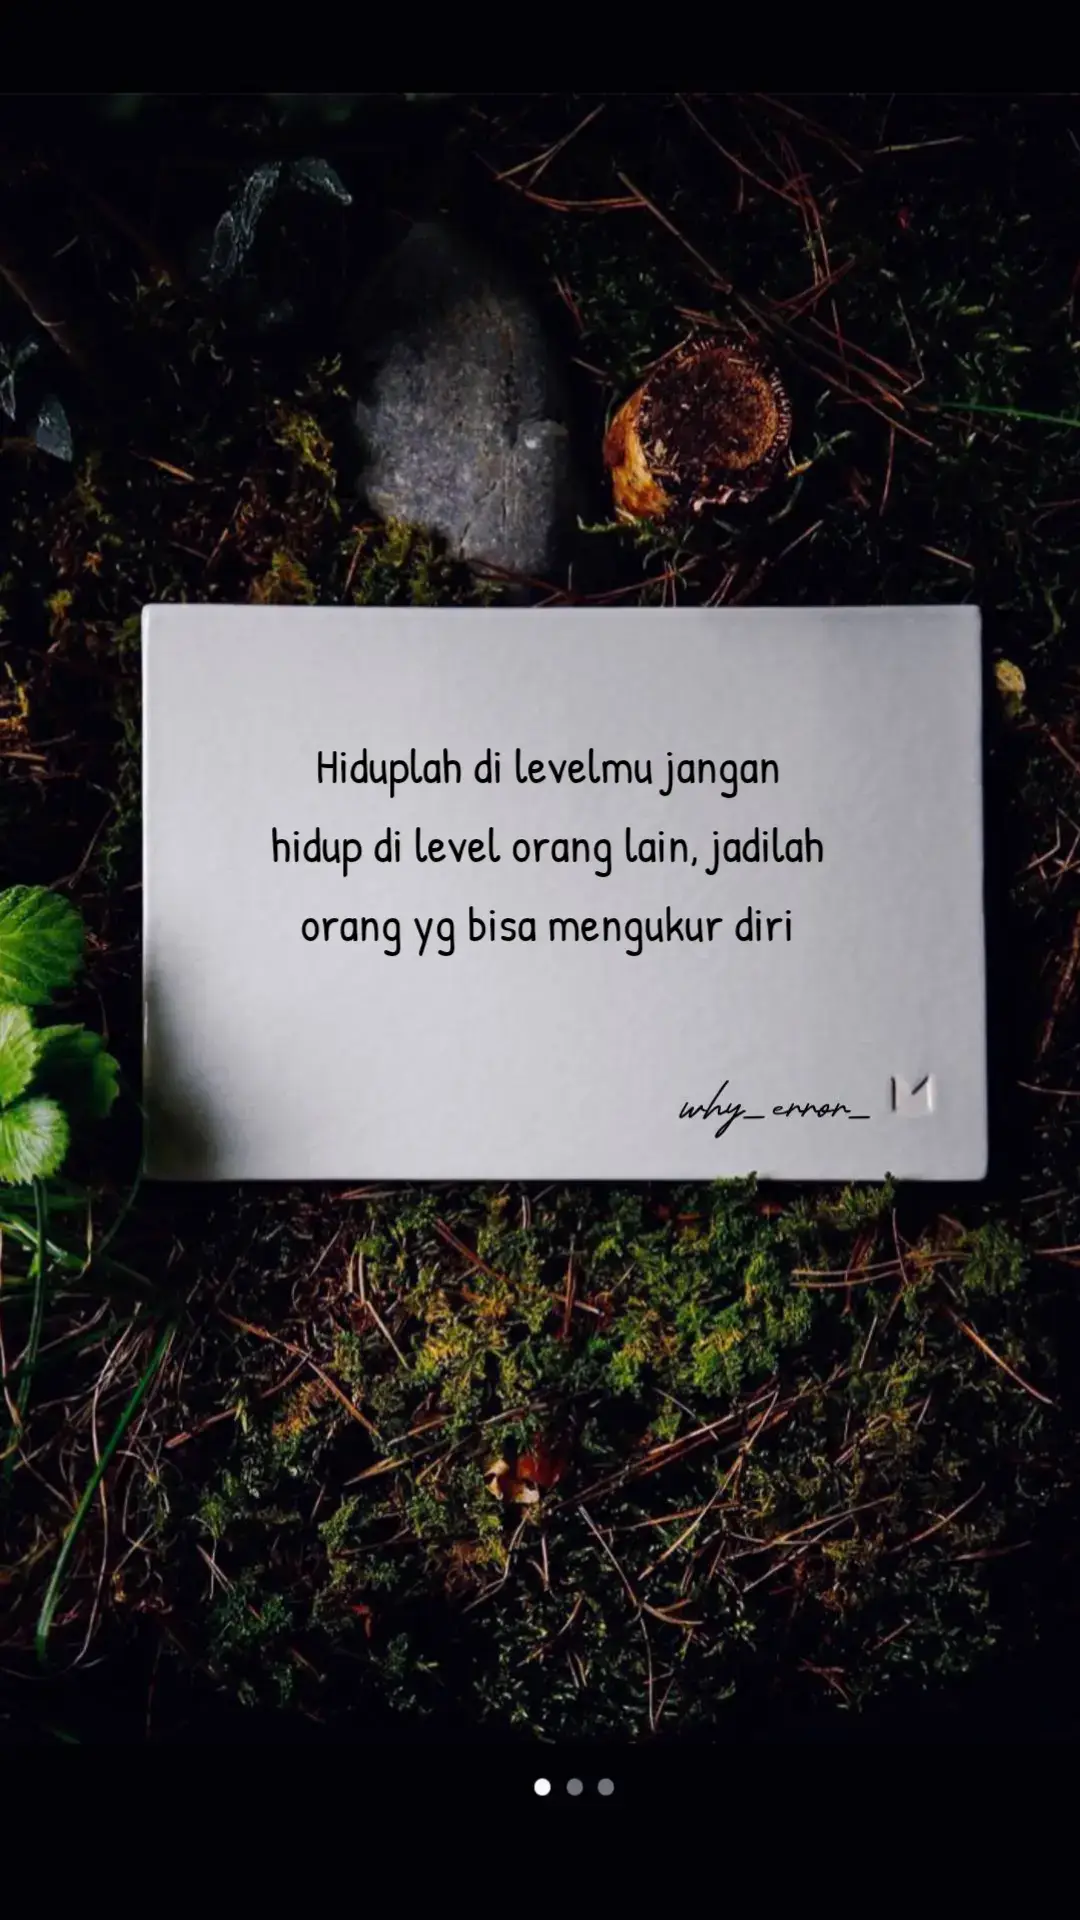 Hiduplah di levelmu jangan
hidup di level orang lain, jadilah
orang yg bisa mengukur diri
why_error_